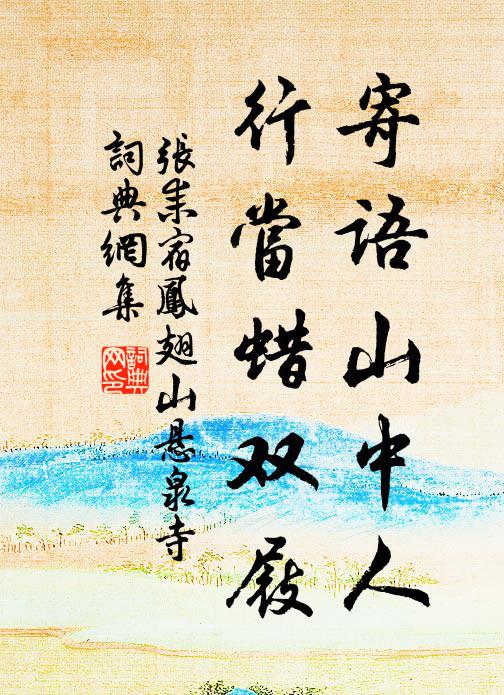 寄语山中人
行當蜡双屐
張耒宿鳳翅山悬泉寺
詞典網集
詞典网印